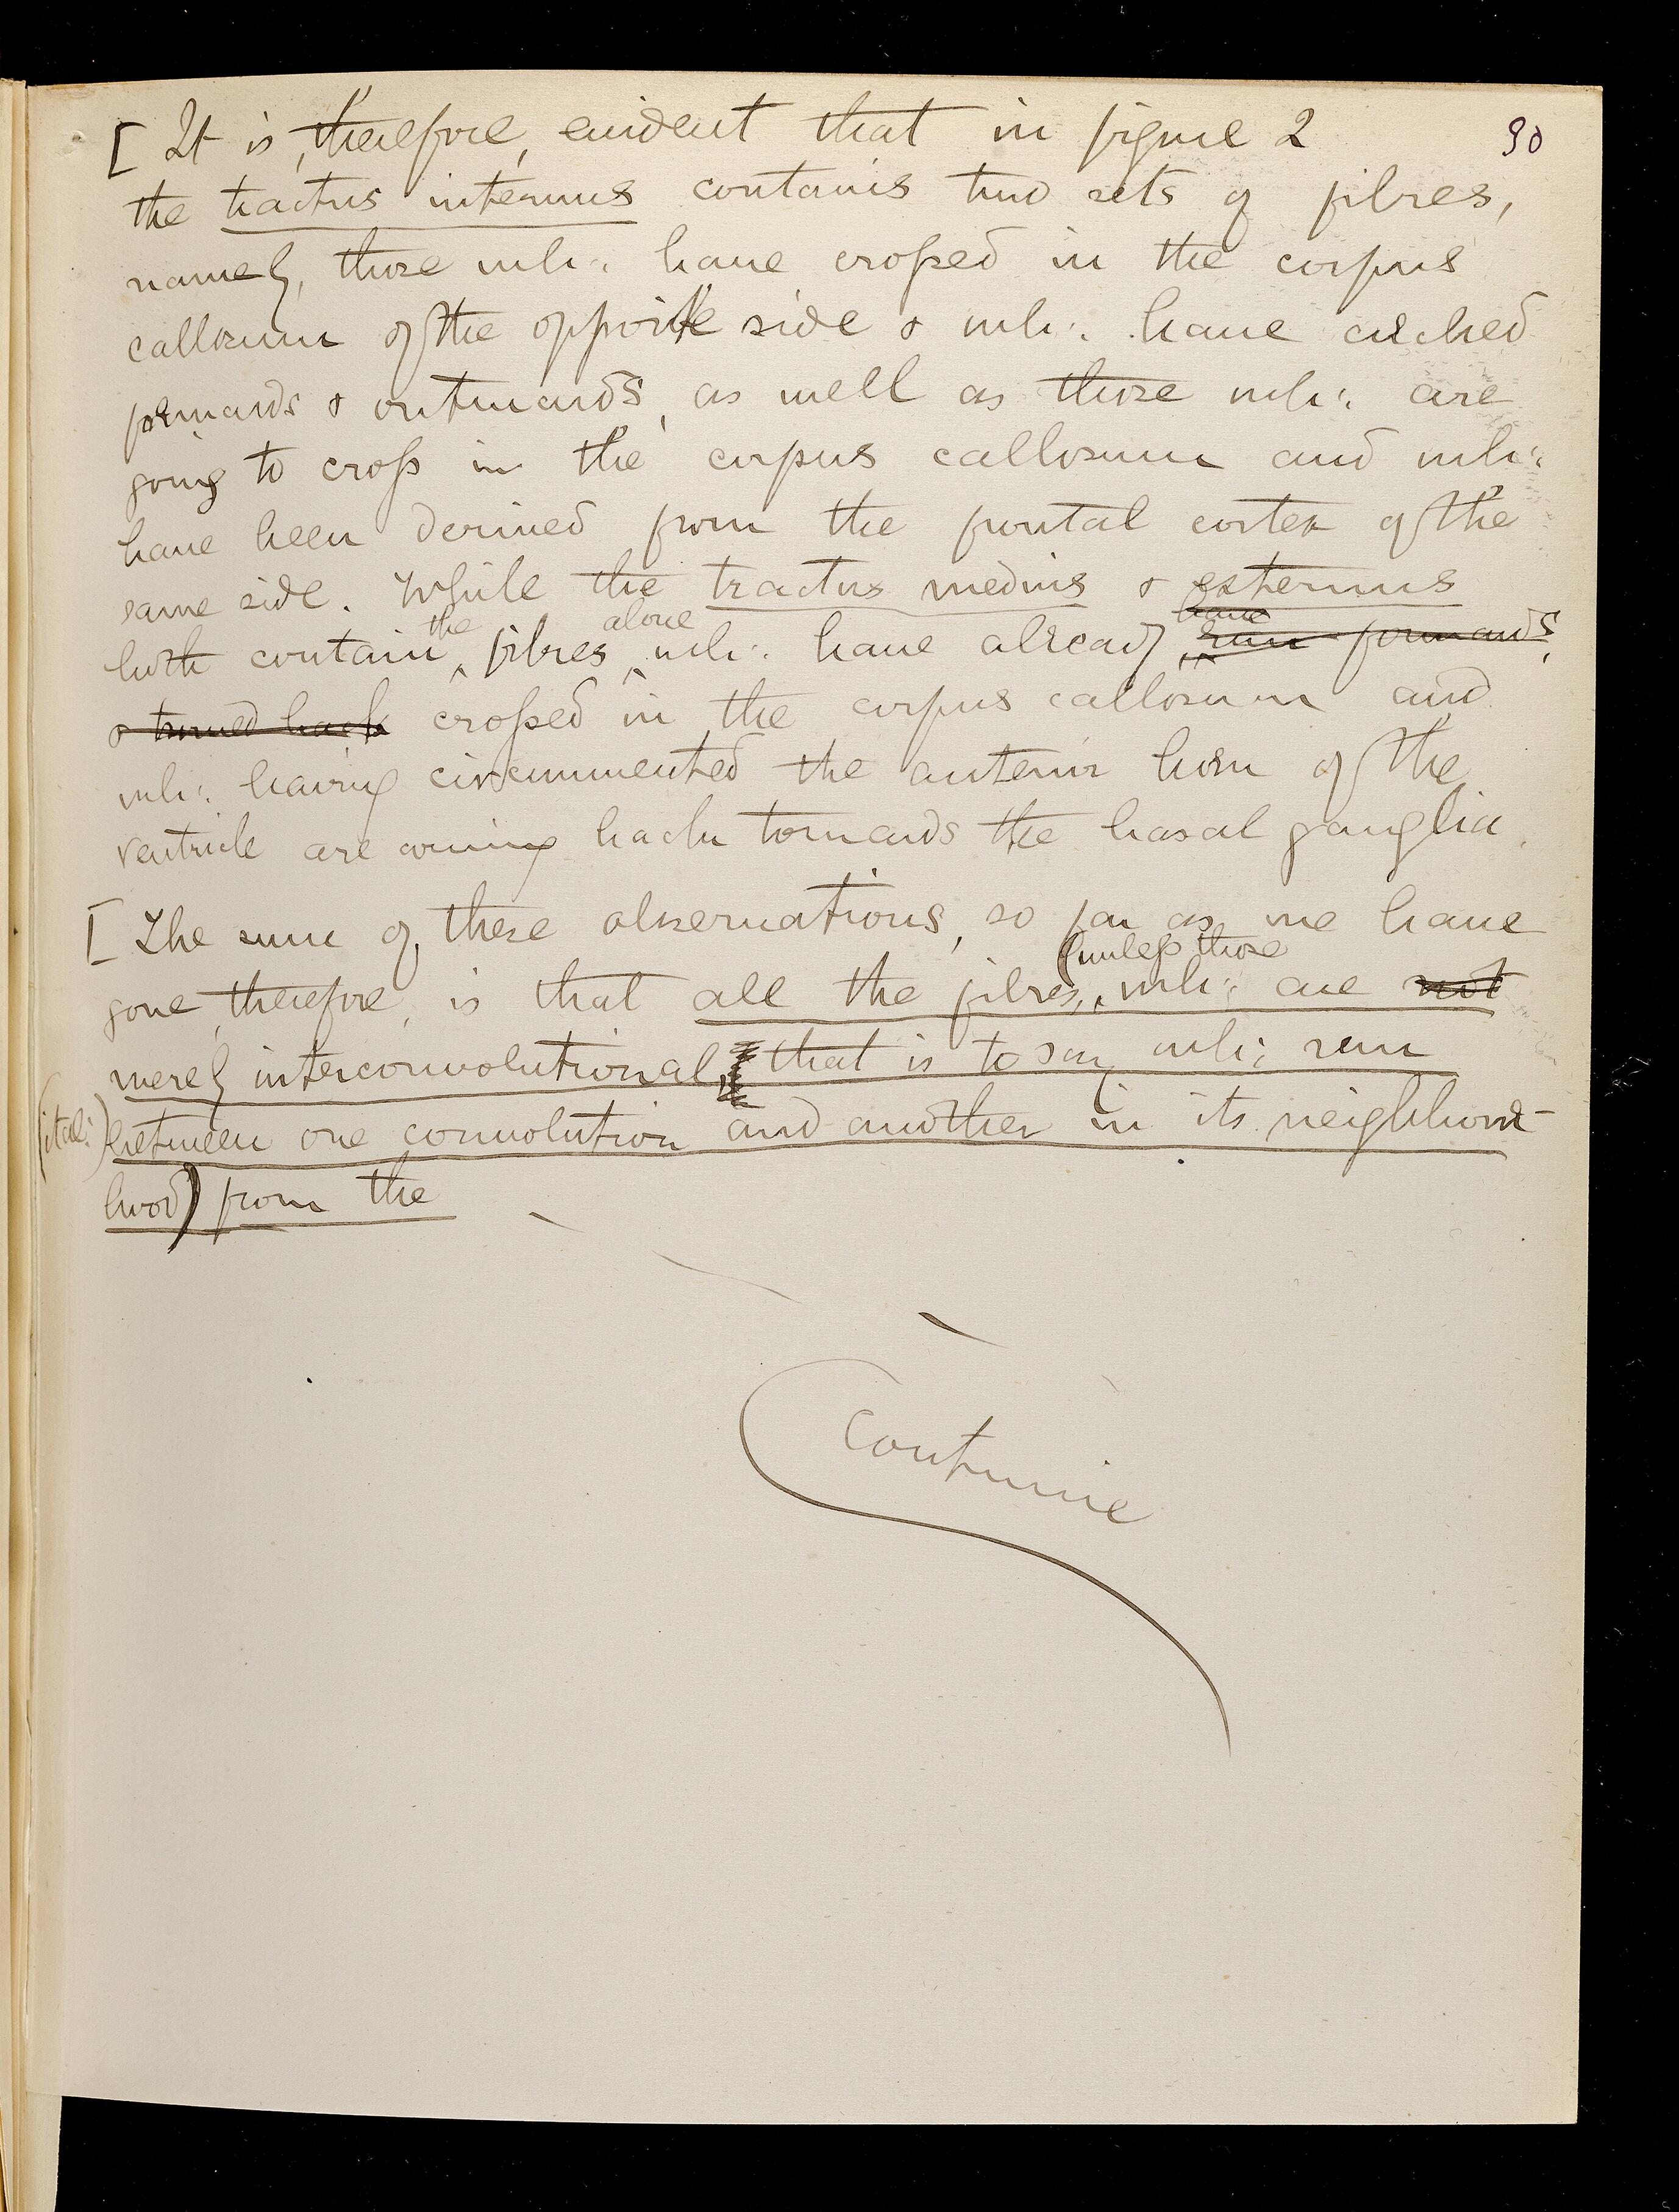 [ It is, therefore, evident that in figure 2
90
the tractus internus contains two sets of fibres,
namely, those wh: have crossed in the corpus
callosum of the opposite side & wh: have arched
forwards & outwards, as well as those wh: are
going to cross in the corpus callosum and wh:
have been derived from the frontal cortex of the
same side. While the tractus medius & externus
the alone have
both contain fibres wh: have already run forwards,
& turned back crossed in the corpus callosum and
wh: having circumvented the anterior horn of the
ventricle are coming back towards the basal ganglia.
[ The sum of these observations, so far as we have
(unless those
gone, therefore, is that all the fibres, wh: are not
merely interconvolutional, that is to say wh: run
(ital:) between one convolution and another in its neighbour-
hood) from the
Continue